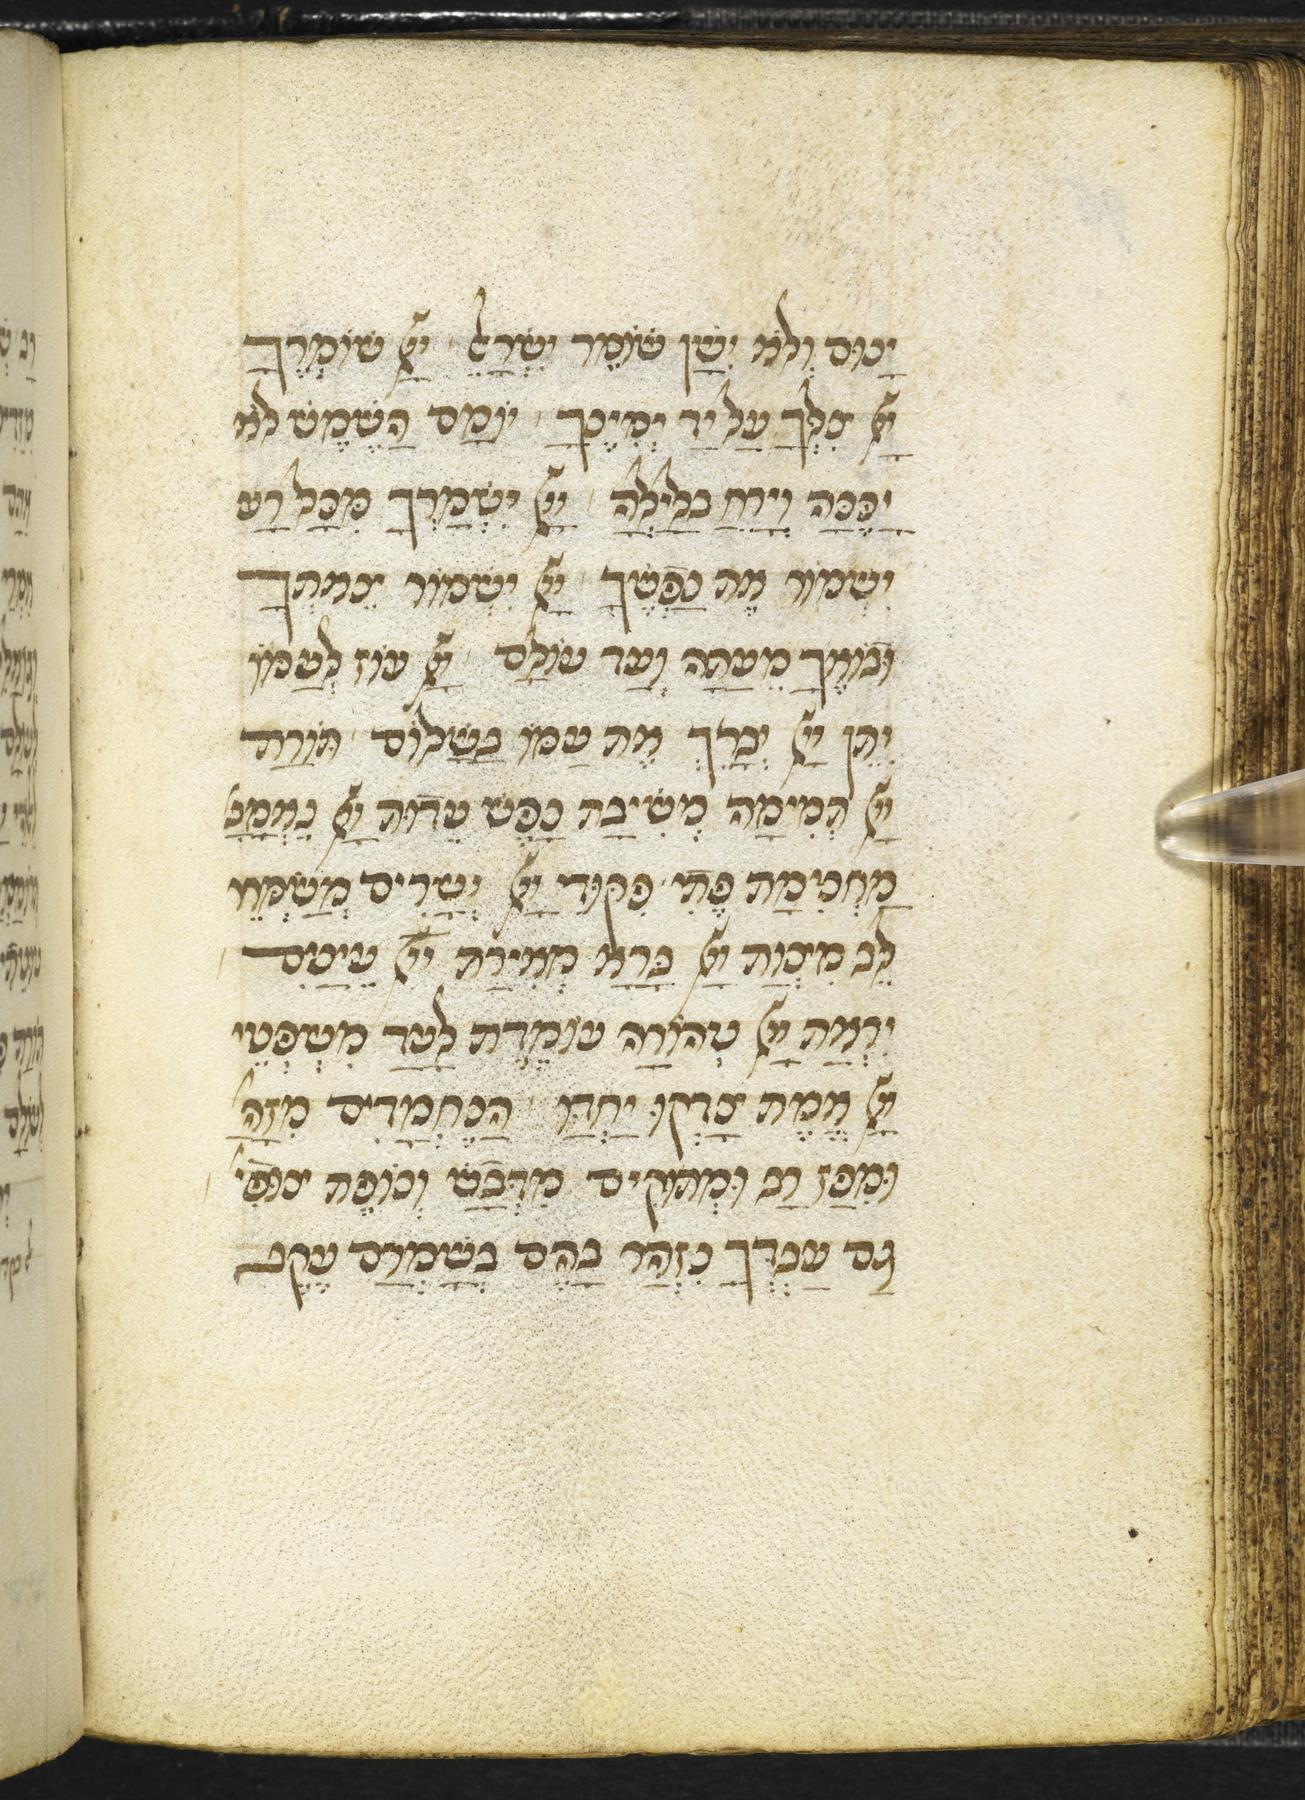 יָנוּם וְלֹא יִשָׁן שׁוֹמֵר יִשְׂרָאֵל יְיָ שׁוֹמְרֶךָ
יְיָ צִלְךָ עַל יַד יְמִינֶךָ יוֹמָם הַשֶׁמֶשׁ לא
יַכֶּכָּה וְיָרֵחַ בלָיְלָה יְיָ יִשְׁמָרְךָ מִכָּל רַע
יִשְׁמוֹר אֶת נַפְשֶׁךָ יְיָ יִשְׁמוֹר צֵאתְךָ
וּבוֹאֶךָ מֵעַתָה וְעַד עוֹלָם יְיָ עוֹז לְעַמוֹ
יִתֵן יְיָ יְבָרֵךְ אֶת עַמוֹ בַשָׁלוֹם תוֹרַת
יְיָ תְמִימָה מְשִׁיבַת נָפֶשׁ עֵדוּת יְיָ נֶאֱמָנָ
מַחְכִּימַת פֶּתִי פִּקוּדֵי יְיָ יְשָׁרִים מְשַׂמְחֵי
לֵב מִצְוַת יְיָ בָּרָה מְאִירַת יְיָ עֵינָיִם
יִרְאַת יְיָ טְהוֹרָה עוֹמֶדֶת לָעַד מִשְׁפְּטֵי
יְיָ אֱמֶת צָדְקוּ יַחְדָו הַנֶחְמָדִים מִזָהָ
וּמִפַּז רַב וּמְתוּקִים מִדְּבַשׁ וְנוֹפֶת צוּפִי
גַם עַבְדְךָ נִזְהָר בָהֶם בְשָׁמְרָם עֵקֶב